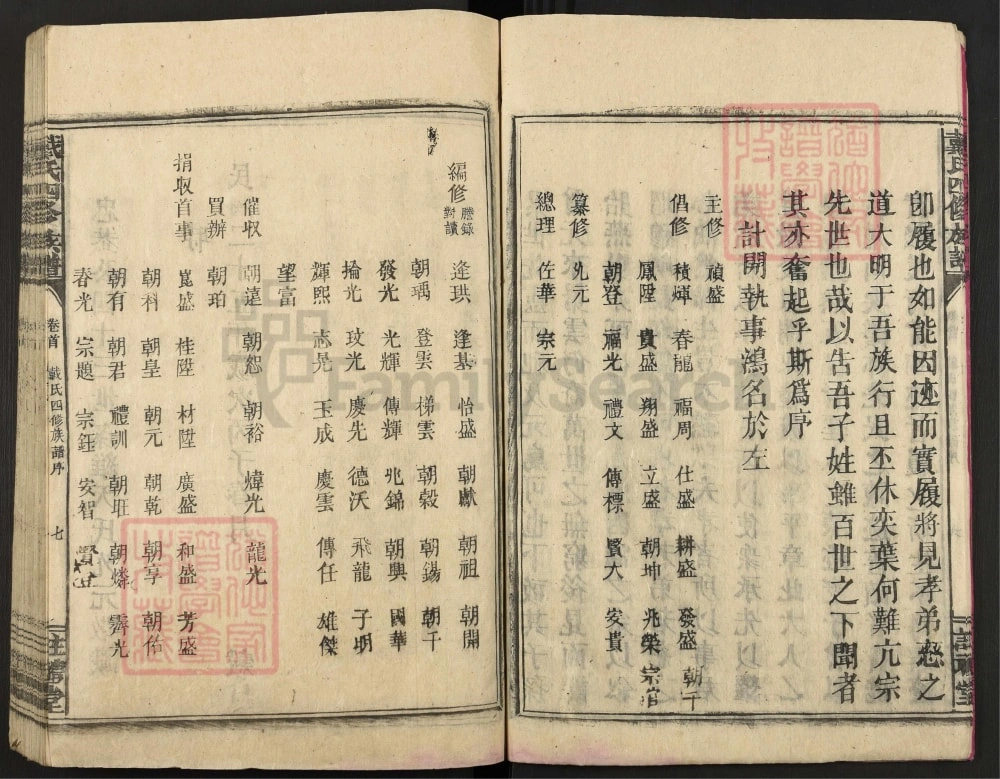 卽履也如能因迹而實履將見孝弟慈之
道大明于吾族行且丕休奕葉何難亢宗
先世也哉以吿吾子姓雖百世之下聞者
其亦奮起乎斯爲序
計開執事鴻名於左
主修 禎盛
倡修 積煇 春龍 福周 仕盛 耕盛 發盛 朝千
鳳陞 貴盛 翔盛 立盛 朝坤 兆榮 宗官
朝登 福光 禮文 傳標 賢大 安貴
纂修 兆元
總理 佐華 宗元
戴氏四修族譜
編修 謄錄 對讀 逢珙 逢基 怡盛 朝獻 朝祖 朝開
朝瑀 登雲 梯雲 朝穀 朝錫 朝千
發光 光輝 傳輝 兆錦 朝興 國華
掄光 玟光 慶先 德沃 飛龍 子明
輝熙 志晃 玉成 慶雲 傳任 雄傑
望富
催收 朝遠 朝恕 朝裕 煒光 龍光
買辦 朝珀
捐収首事 崑盛 桂陞 材陞 廣盛 和盛 芳盛
朝科 朝皇 朝元 朝乾 朝享 朝佑
朝有 朝君 禮訓 朝班 朝燐 霽光
春光 宗題 宗鈺 安智
戴氏四修族譜 卷首 戴氏四修族譜序 七
FamilySearch